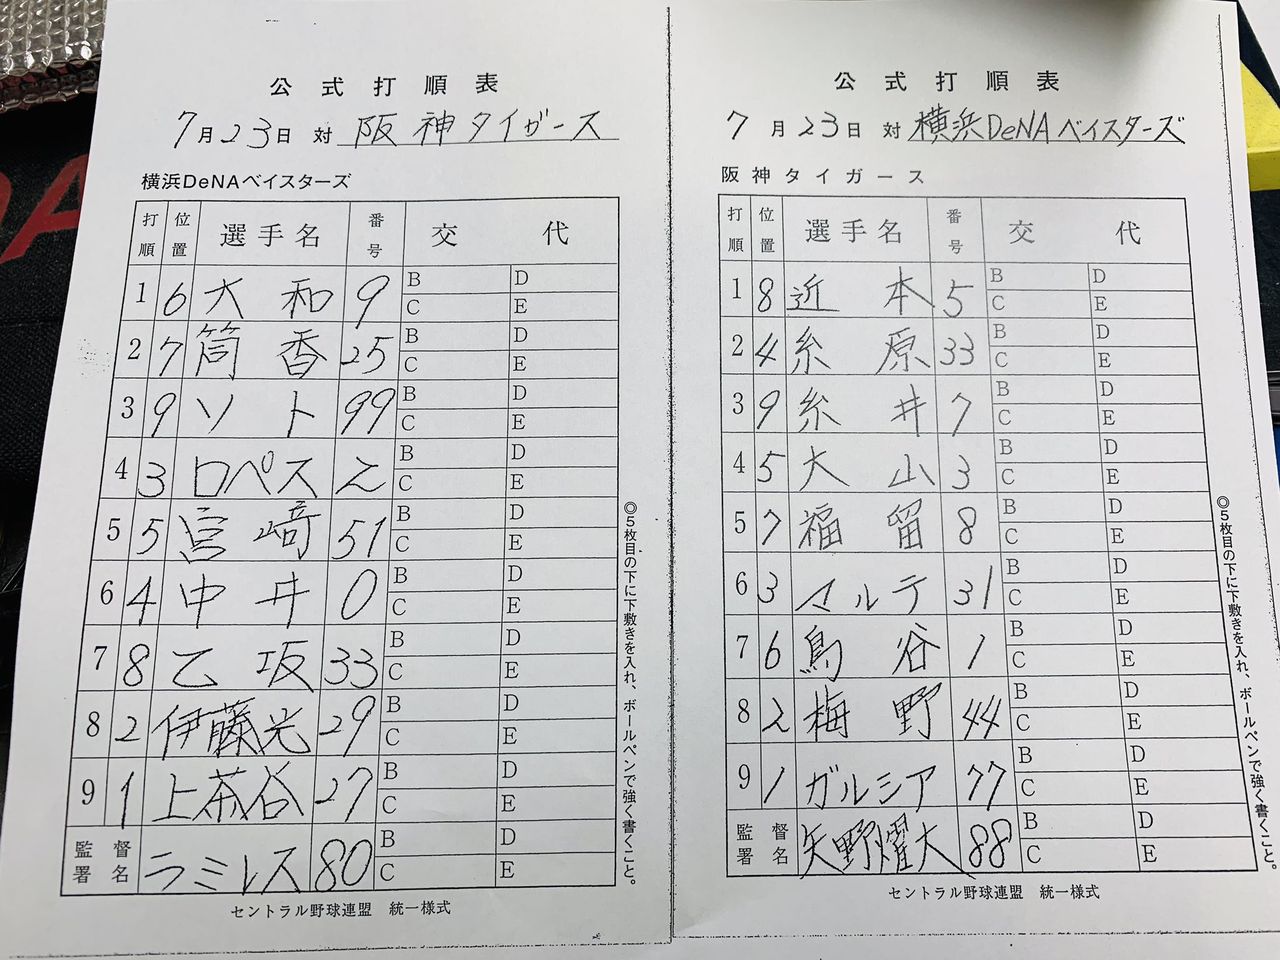 公式打順表
7月23日 対 阪神タイガース
横浜DeNAベイスターズ
打順 位置 選手名 番号 交代
1 6 大和 9 B D C E
2 7 筒香 25 B D C E
3 9 ソト 99 B D C E
4 3 ロペス 2 B D C E
5 5 宮﨑 51 B D C E
6 4 中井 0 B D C E
7 8 乙坂 33 B D C E
8 2 伊藤光 29 B D C E
9 1 上茶谷 27 B D C E
監督署名 ラミレス 80 B D C E
セントラル野球連盟 統一様式
◎5枚目の下に下敷きを入れ、ボールペンで強く書くこと。
公式打順表
7月23日 対 横浜DeNAベイスターズ
阪神タイガース
打順 位置 選手名 番号 交代
1 8 近本 5 B D C E
2 4 糸原 33 B D C E
3 9 糸井 7 B D C E
4 5 大山 3 B D C E
5 7 福留 8 B D C E
6 3 マルテ 31 B D C E
7 6 鳥谷 1 B D C E
8 2 梅野 44 B D C E
9 1 ガルシア 77 B D C E
監督署名 矢野燿大 88 B D C E
セントラル野球連盟 統一様式
◎5枚目の下に下敷きを入れ、ボールペンで強く書くこと。